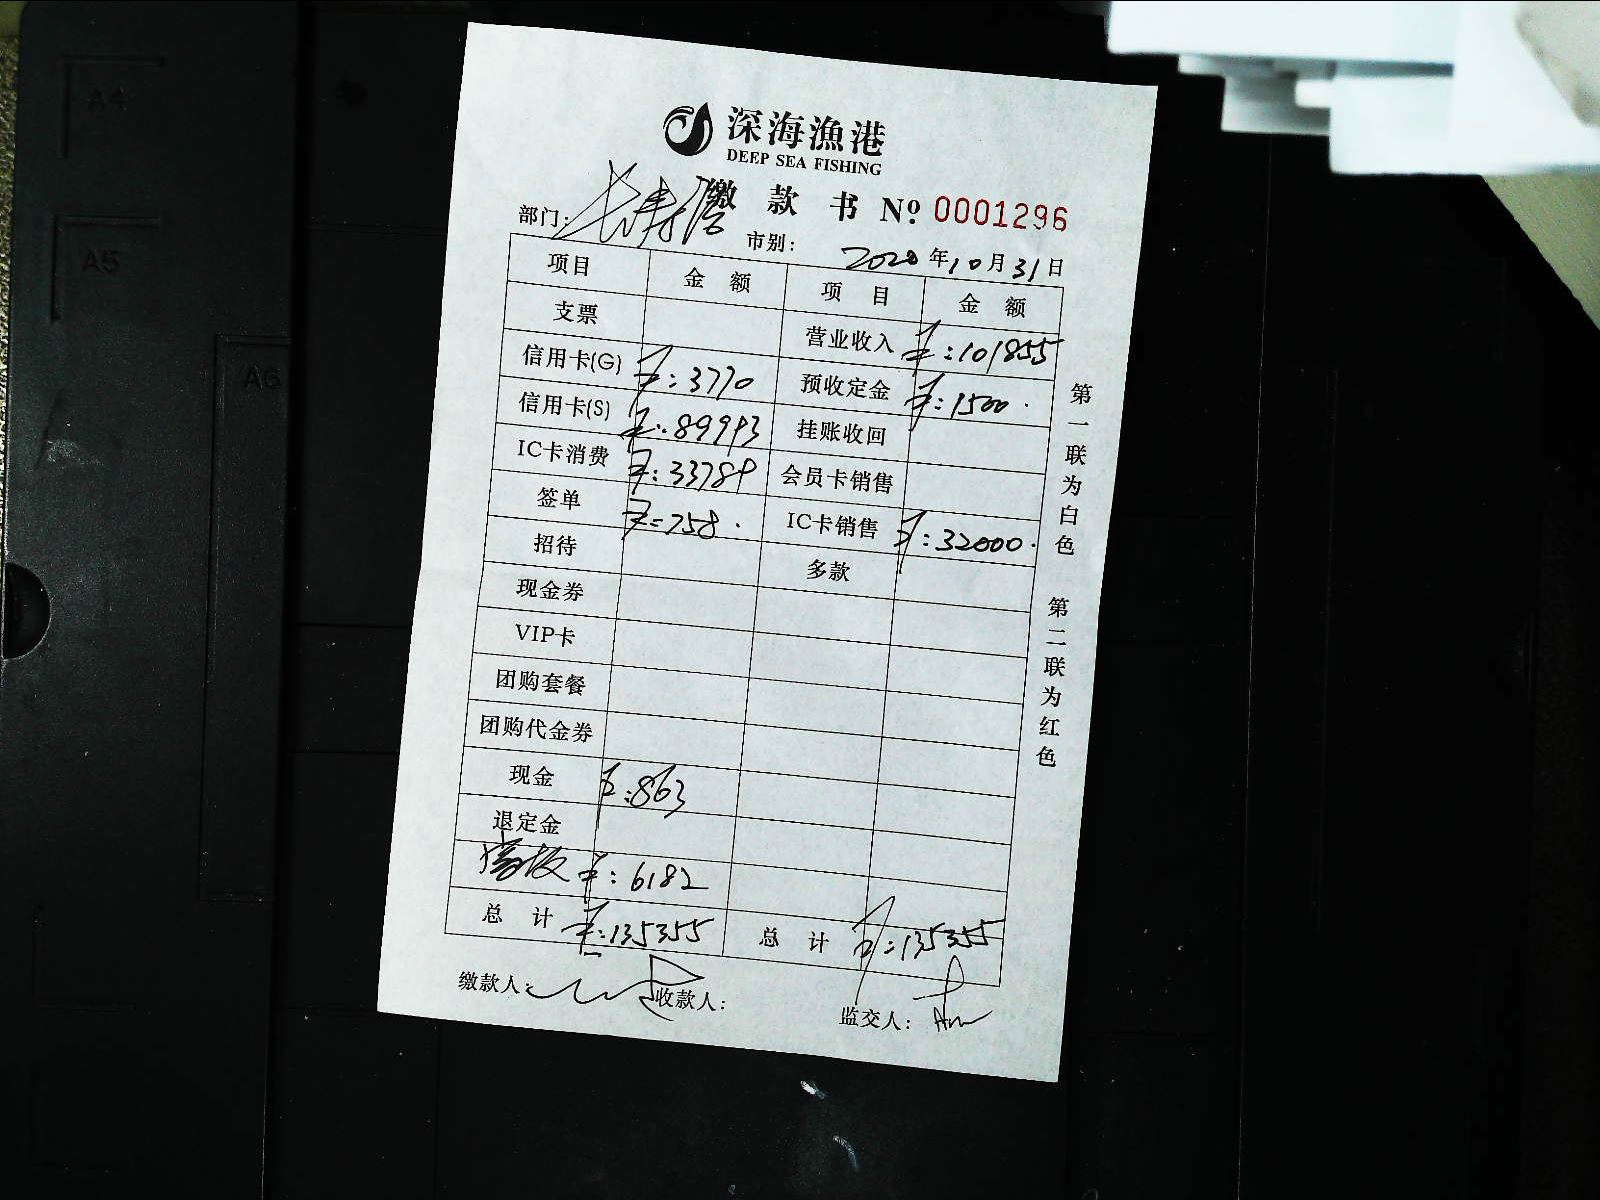 A4
A5
A6
深海漁港
DEEP SEA FISHING
缴款书 Nº 0001296
部门: 市别: 2020年10月31日
项目 金额 项目 金额
支票 营业收入 ¥:101855
信用卡(G) ¥:3770 预收定金 ¥:1500
信用卡(S) ¥:89993 挂账收回
IC卡消费 ¥:33789 会员卡销售
签单 ¥:758 IC卡销售 ¥:32000
招待 多款
现金券
VIP卡
团购套餐
团购代金券
现金 ¥:863
退定金
¥:6182
总计 ¥:135355 总计 ¥:135355
缴款人: 收款人: 监交人:
第一联为白色 第二联为红色